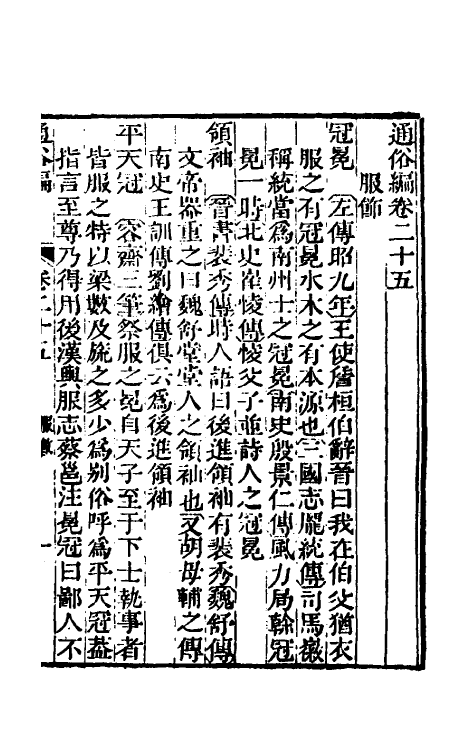 通俗編卷二十五
服飾
冠冕　左傳昭九年王使詹桓伯辭晉曰我在伯父猶衣
服之有冠冕水木之有本源也三國志龐統傳司馬徽
稱統當爲南州士之冠冕南史殷景仁傳風力局幹冠
冕一時北史崔㥄傳㥄父子並詩人之冠冕
領袖　晉書裴秀傳時人語曰後進領袖有裴秀魏舒傳
文帝器重之曰魏舒堂堂人之領袖也又胡母輔之傳
南史王訓傳劉繪傳俱云爲後進領袖
平天冠　容齋三筆祭服之冕自天子至于下士執事者
皆服之特以梁數及旒之多少爲别俗呼爲平天冠葢
指言至尊乃得用後漢輿服志蔡邕注冕冠曰鄙人不
通俗編　卷二十五　服飾　一